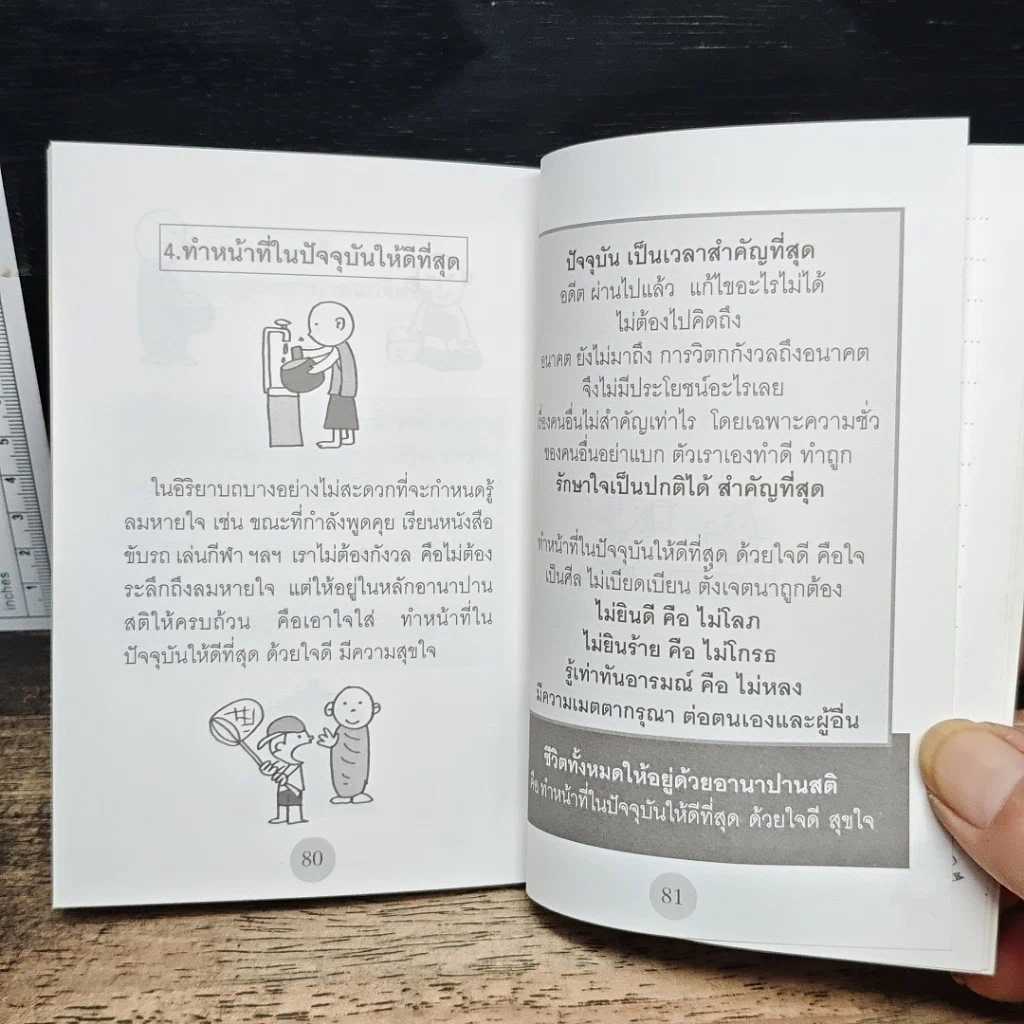 4.ทำหน้าที่ในปัจจุบันให้ดีที่สุด
ในอิริยาบถบางอย่างไม่สะดวกที่จะกำหนดรู้
ลมหายใจ เช่น ขณะที่กำลังพูดคุย เรียนหนังสือ
ขับรถ เล่นกีฬา ฯลฯ เราไม่ต้องกังวล คือไม่ต้อง
ระลึกถึงลมหายใจ แต่ให้อยู่ในหลักอานาปาน
สติให้ครบถ้วน คือเอาใจใส่ ทำหน้าที่ใน
ปัจจุบันให้ดีที่สุด ด้วยใจดี มีความสุขใจ
80
ปัจจุบัน เป็นเวลาสำคัญที่สุด
อดีต ผ่านไปแล้ว แก้ไขอะไรไม่ได้
ไม่ต้องไปคิดถึง
อนาคต ยังไม่มาถึง การวิตกกังวลถึงอนาคต
จึงไม่มีประโยชน์อะไรเลย
เรื่องคนอื่นไม่สำคัญเท่าไร โดยเฉพาะความชั่ว
ของคนอื่นอย่าแบก ตัวเราเองทำดี ทำถูก
รักษาใจเป็นปกติได้ สำคัญที่สุด
ทำหน้าที่ในปัจจุบันให้ดีที่สุด ด้วยใจดี คือใจ
เป็นศีล ไม่เบียดเบียน ตั้งเจตนาถูกต้อง
ไม่ยินดี คือ ไม่โลภ
ไม่ยินร้าย คือ ไม่โกรธ
รู้เท่าทันอารมณ์ คือ ไม่หลง
มีความเมตตากรุณา ต่อตนเองและผู้อื่น
ชีวิตทั้งหมดให้อยู่ด้วยอานาปานสติ
คือ ทำหน้าที่ในปัจจุบันให้ดีที่สุด ด้วยใจดี สุขใจ
81
inches
1
2
3
4
5